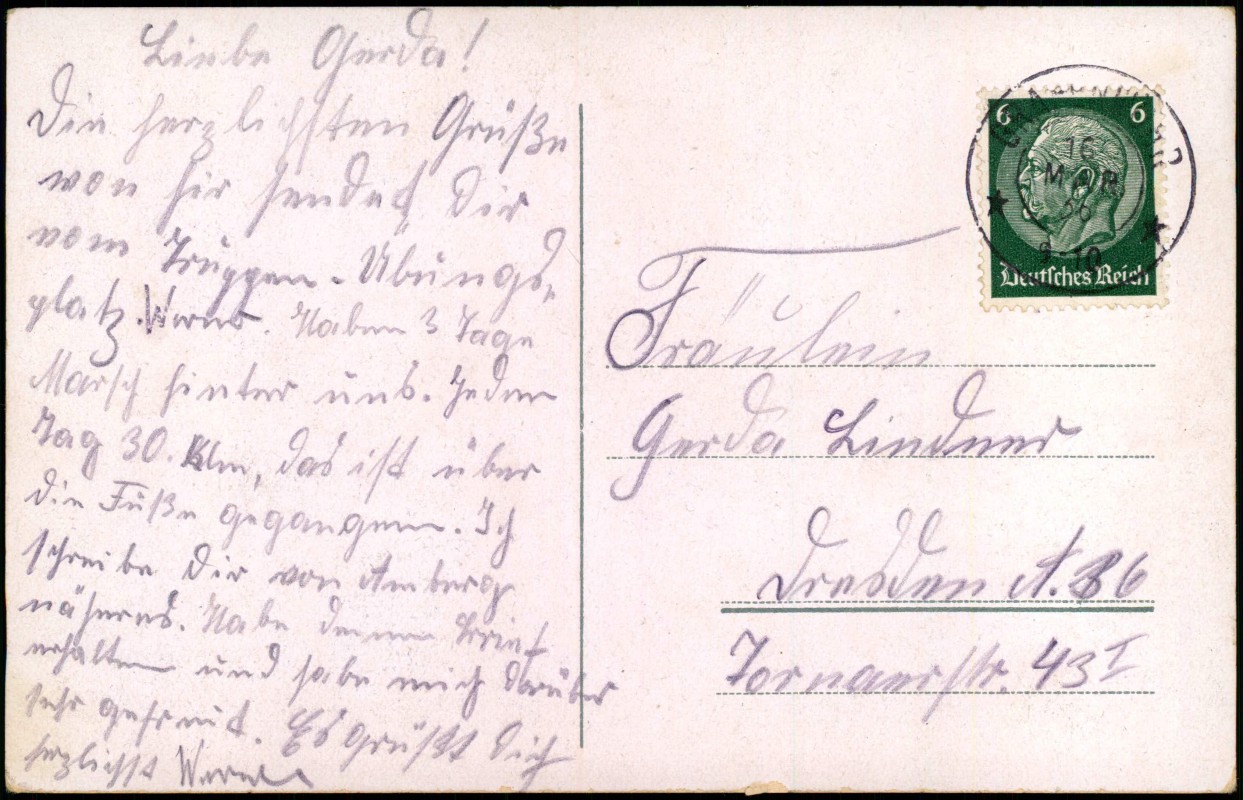 Liebe Gerda!
Die herzlichsten Grüße
von hir sendet Dir
vom Truppen-Übungs-
platz Werner. Haben 3 Tage
Marsch hinter uns. Jeden
Tag 30. Klm, das ist über
die Füße gegangen. Ich
schreibe Dir von Amberg
näheres. Habe deinen Brief
erhalten und habe mich darüber
sehr gefreut. Es grüßt Dich
herzlichst Werner
6 6
16
MAR
36
9-10
Deutsches Reich
Fräulein
Gerda Lindner
Dresden A. 86
Tornaerstr. 43 I